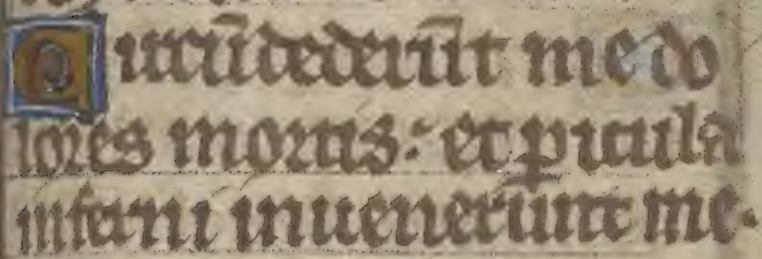 Circūdederūt me do
lores mortis: et ꝑicula
inferni inuenerunt me.